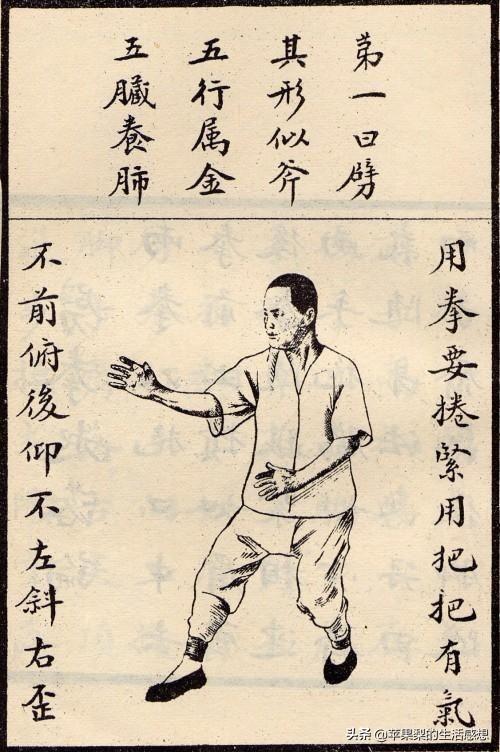 第一曰劈
其形似斧
五行属金
五臟養肺
用拳要捲緊用把把有氣
不前俯後仰不左斜右歪
头条 @苹果梨的生活感想